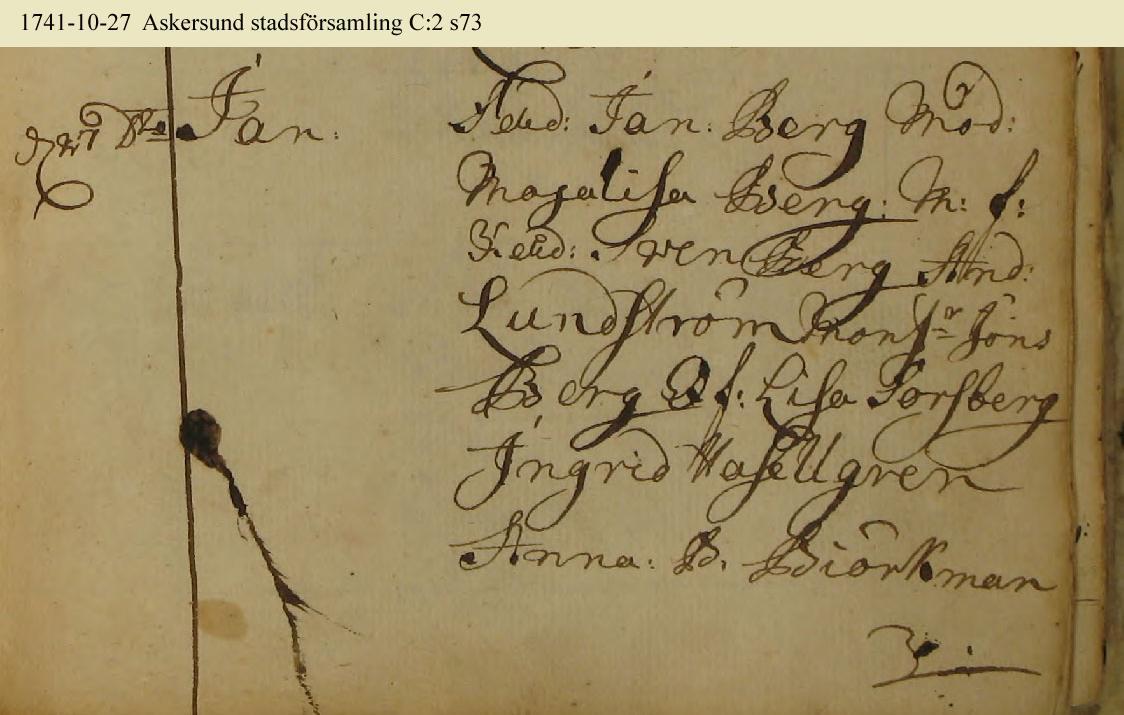 1741-10-27 Askersund stadsförsamling C:2 s73
d 27 Dto Jan.
Fad: Jan: Berg Mod:
Majalisa Berg: M: f:
Sven Berg And:
Lundström Monsr Jöns
Berg Q f: Lisa Forsberg
Ingrid Hasellgren
Anna: B. Biörkman